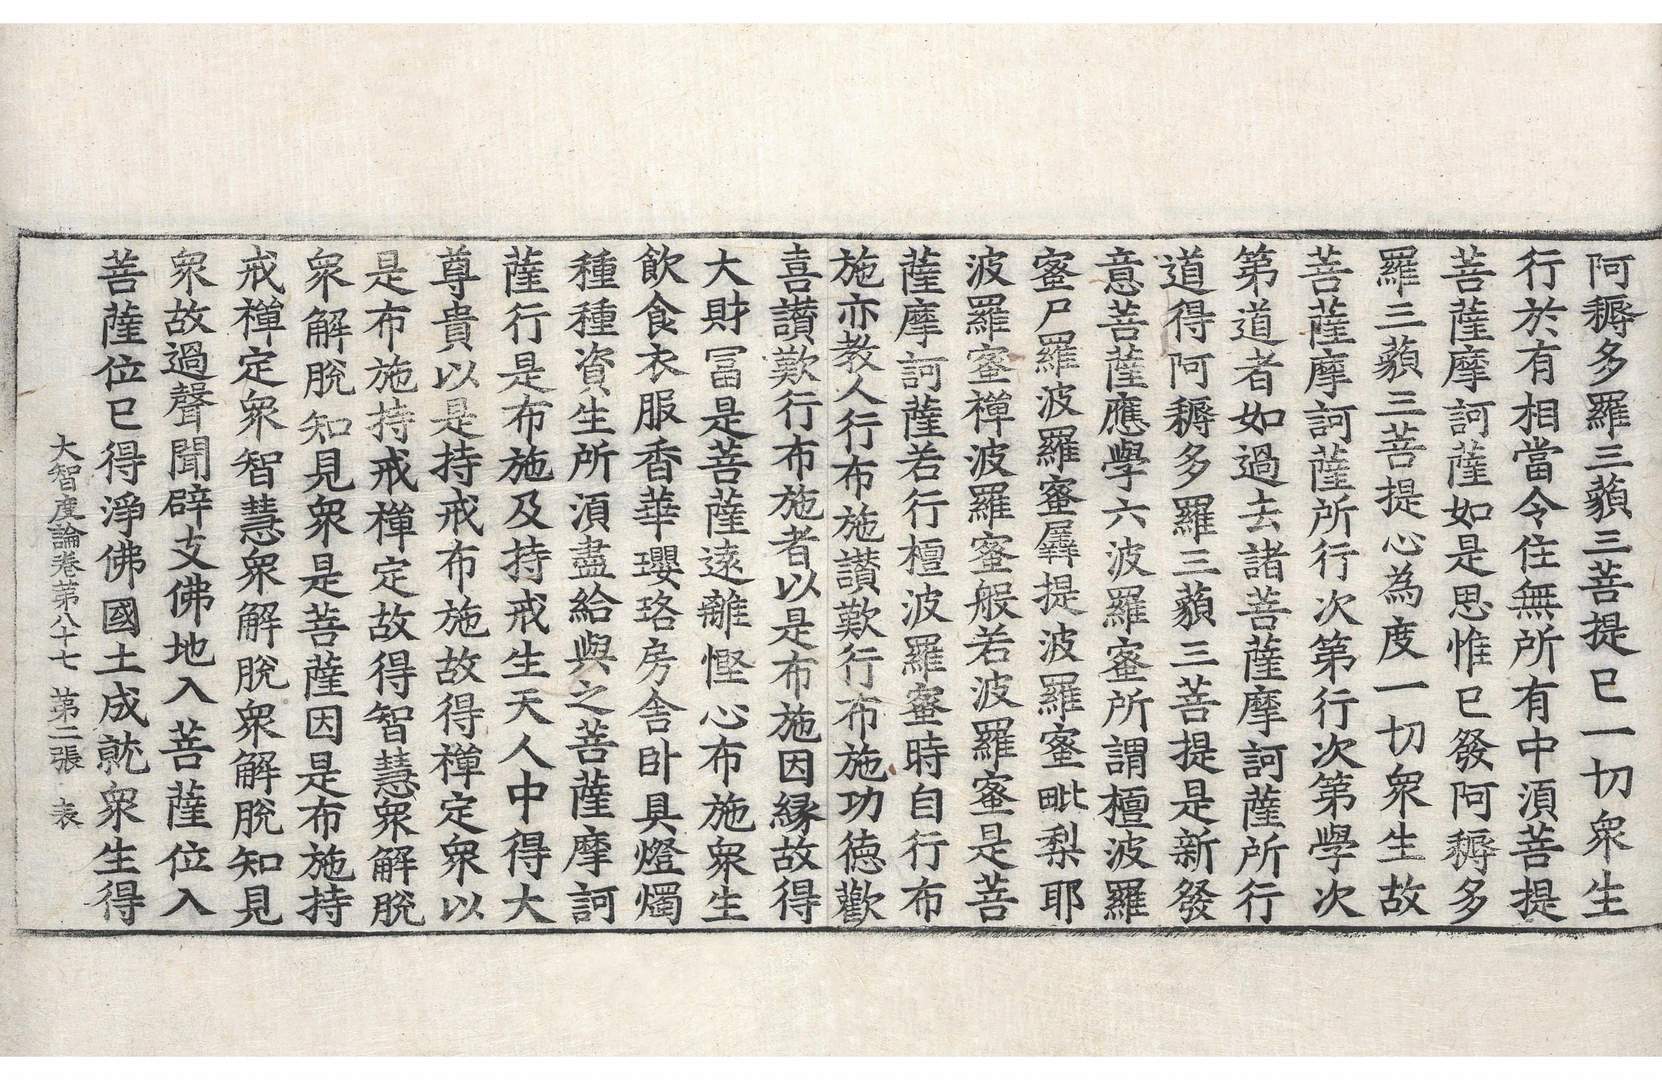 阿耨多羅三藐三菩提已一切衆生
行於有相當令住無所有中湏菩提
菩薩摩訶薩如是思惟已發阿耨多
羅三藐三菩提心為度一切衆生故
菩薩摩訶薩所行次第行次第學次
第道者如過去諸菩薩摩訶薩所行
道得阿耨多羅三藐三菩提是新發
意菩薩應學六波羅蜜所謂檀波羅
蜜尸羅波羅蜜羼提波羅蜜毗梨耶
波羅蜜禪波羅蜜般若波羅蜜是菩
薩摩訶薩若行檀波羅蜜時自行布
施亦教人行布施讃歎行布施功德歡
喜讃歎行布施者以是布施因縁故得
大財冨是菩薩遠離慳心布施衆生
飲食衣服香華瓔珞房舎卧具燈燭
種種資生所湏盡給與之菩薩摩訶
薩行是布施及持戒生天人中得大
尊貴以是持戒布施故得禪定衆以
是布施持戒禪定故得智慧衆解脫
衆解脫知見衆是菩薩因是布施持
戒禪定衆智慧衆解脫衆解脫知見
衆故過聲聞辟支佛地入菩薩位入
菩薩位已得淨佛國土成就衆生得
大智度論卷第八十七 第二張 表